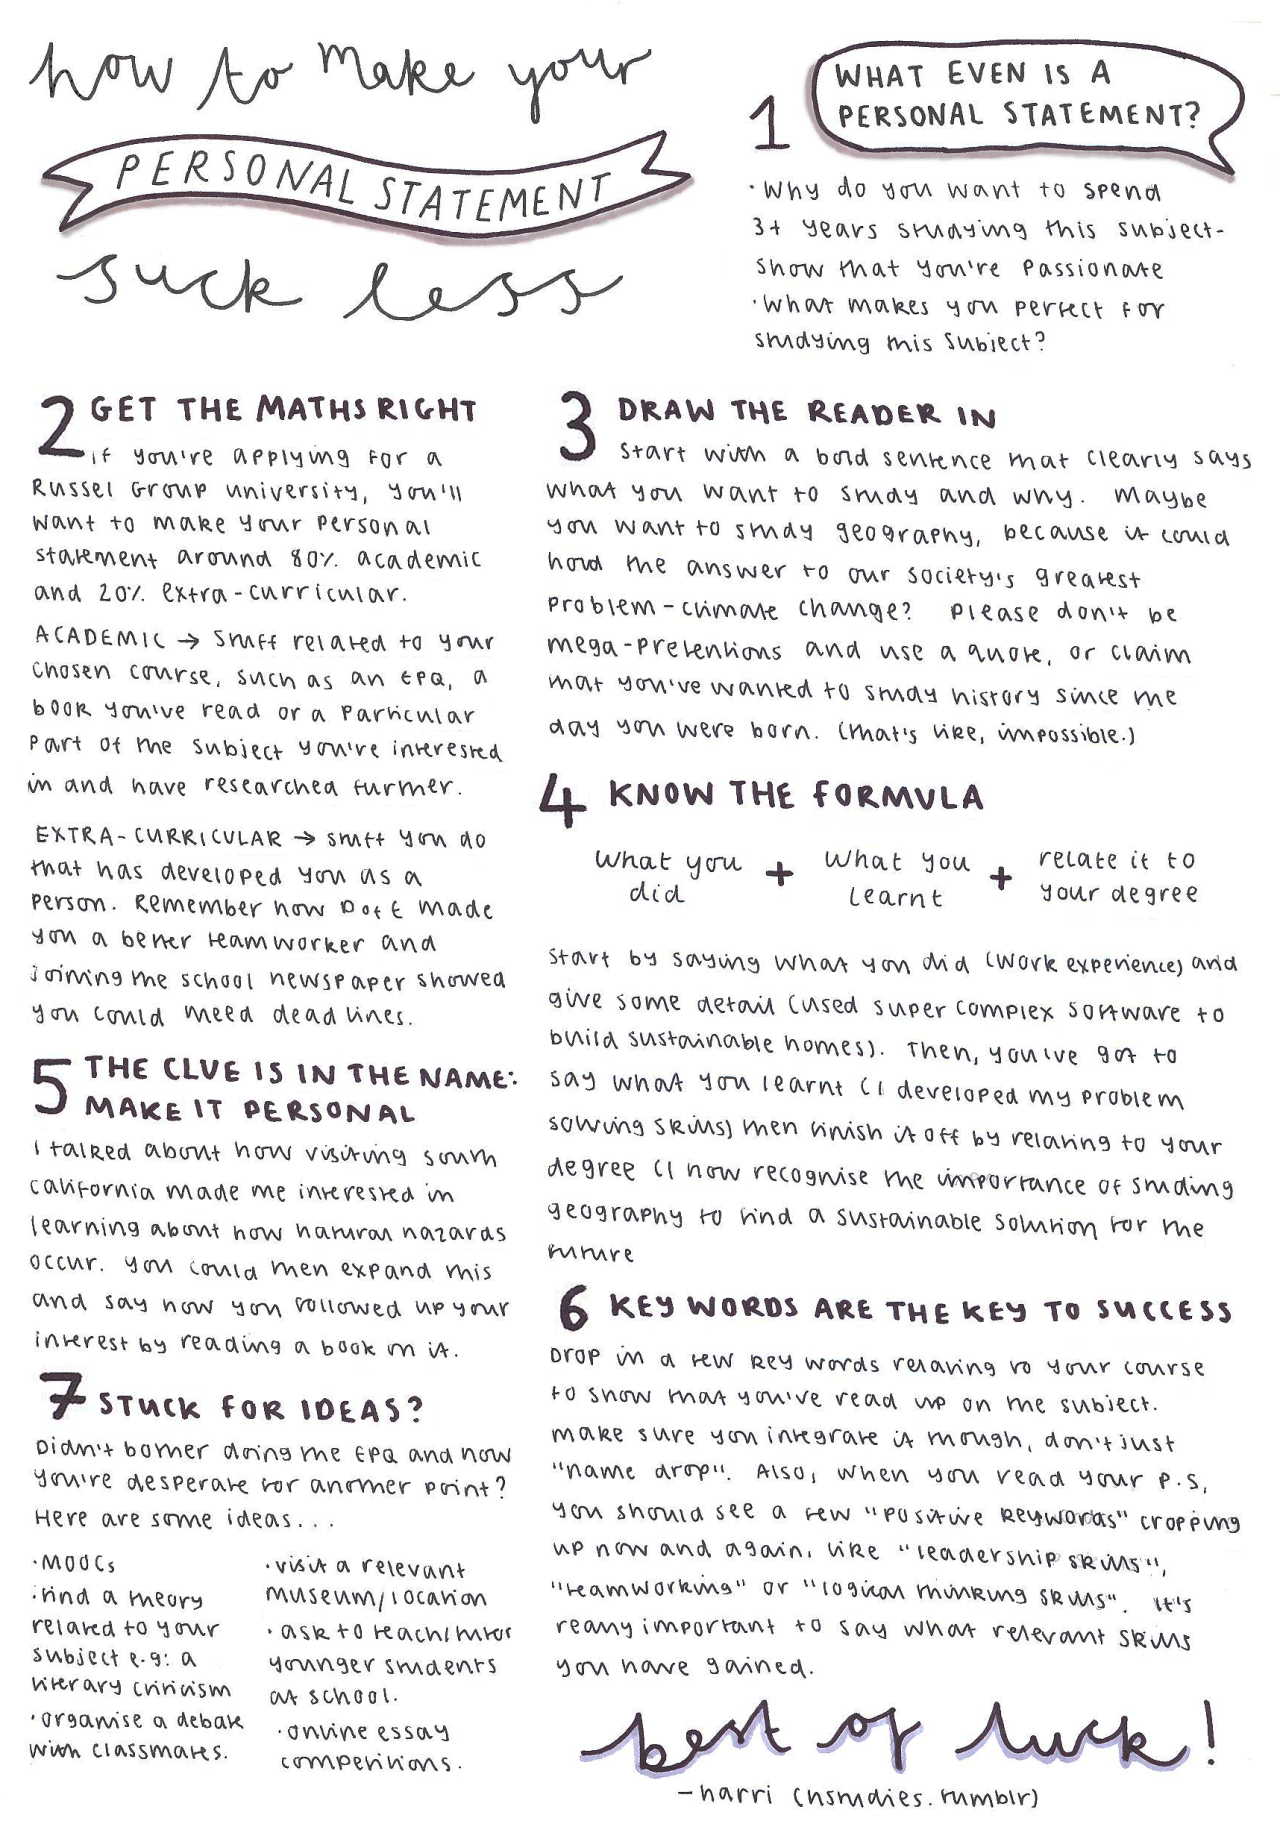 how to make your
PERSONAL STATEMENT
suck less
1 WHAT EVEN IS A
PERSONAL STATEMENT?
· Why do you want to spend
3+ years studying this subject-
show that you're passionate
· What makes you perfect for
studying this subject?
2 GET THE MATHS RIGHT
if you're applying for a
Russel Group university, you'll
want to make your personal
statement around 80% academic
and 20% extra-curricular.
ACADEMIC → stuff related to your
chosen course, such as an EPQ, a
book you've read or a particular
part of the subject you're interested
in and have researched further.
EXTRA-CURRICULAR → stuff you do
that has developed you as a
person. Remember how D of E made
you a better teamworker and
joining the school newspaper showed
you could meed deadlines.
3 DRAW THE READER IN
Start with a bold sentence that clearly says
what you want to study and why. Maybe
you want to study geography, because it could
hold the answer to our society's greatest
problem-climate change? Please don't be
mega-pretentious and use a quote, or claim
that you've wanted to study history since the
day you were born. (that's like, impossible.)
4 KNOW THE FORMULA
What you did + What you learnt + relate it to your degree
Start by saying what you did (work experience) and
give some detail (used super complex software to
build sustainable homes). Then, you've got to
say what you learnt (I developed my problem
solving skills) then finish it off by relating to your
degree (I now recognise the importance of studing
geography to find a sustainable solution for the
future
5 THE CLUE IS IN THE NAME:
MAKE IT PERSONAL
I talked about how visiting south
california made me interested in
learning about how natural hazards
occur. You could then expand this
and say how you followed up your
interest by reading a book on it.
6 KEY WORDS ARE THE KEY TO SUCCESS
Drop in a few key words relating to your course
to show that you've read up on the subject.
Make sure you integrate it though, don't just
"name drop". Also, when you read your p.s,
you should see a few "positive keywords" cropping
up now and again, like "leadership skills",
"teamworking" or "logical thinking skills". It's
really important to say what relevant skills
you have gained.
7 STUCK FOR IDEAS?
Didn't bother doing the EPQ and now
you're desperate for another point?
Here are some ideas...
· MOOCs
· find a theory
related to your
subject e.g: a
literary criticism
· organise a debate
with classmates.
· visit a relevant
museum/location
· ask to teach/tutor
younger students
at school.
· online essay
competitions.
best of luck!
-harri (hstudies.tumblr)